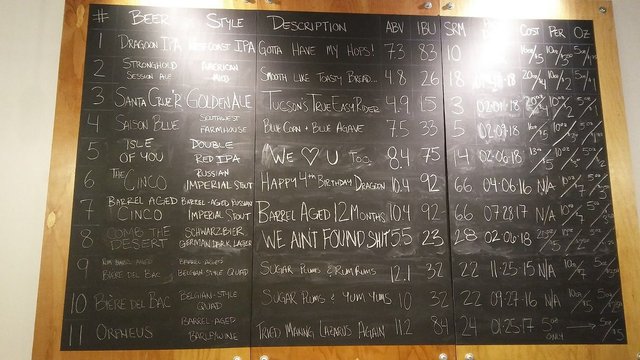 # BEER STYLE DESCRIPTION ABV IBU SRM COST PER OZ
1 DRAGOON IPA WEST COAST IPA GOTTA HAVE MY HOPS! 7.3 83 10
2 STRONGHOLD SESSION ALE AMERICAN MILD SMOOTH LIKE TOASTY BREAD... 4.8 26 18
3 SANTA CRUE'R GOLDEN ALE TUCSON'S TRUE EASY RIDER 4.9 15 3 02·01·18
4 SAISON BLUE SOUTHWEST FARMHOUSE BLUE CORN + BLUE AGAVE 7.5 33 5 02·09·18
5 ISLE OF YOU DOUBLE RED IPA WE ♡ U TOO, 8.4 75 14 02·06·18
6 THE CINCO RUSSIAN IMPERIAL STOUT HAPPY 4TH BIRTHDAY DRAGOON 10.4 92 66 04·06·16 N/A
7 BARREL AGED CINCO BARREL-AGED RUSSIAN IMPERIAL STOUT BARREL AGED 12 MONTHS 10.4 92 66 07·28·17 N/A
8 COMB THE DESERT SCHWARZBIER GERMAN DARK LAGER WE AIN'T FOUND SHIT 5.5 23 28 02·06·18
9 RUM BARREL AGED BIÈRE DEL BAC BARREL AGED BELGIAN STYLE QUAD SUGAR PLUMS & RUM RUMS 12.1 32 22 11·25·15 N/A
10 BIÈRE DEL BAC BELGIAN-STYLE QUAD SUGAR PLUMS & YUM YUMS 10 32 22 09·27·16 N/A
11 ORPHEUS BARREL AGED BARLEYWINE TRIED MAKING LAZARUS AGAIN 11.2 84 24 01·25·17 5oz ONLY